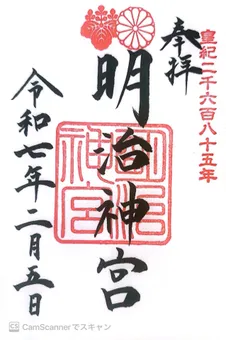 皇紀二千六百八十五年
奉拝
明治神宮
明治神宮
令和七年二月五日
CS CamScannerでスキャン